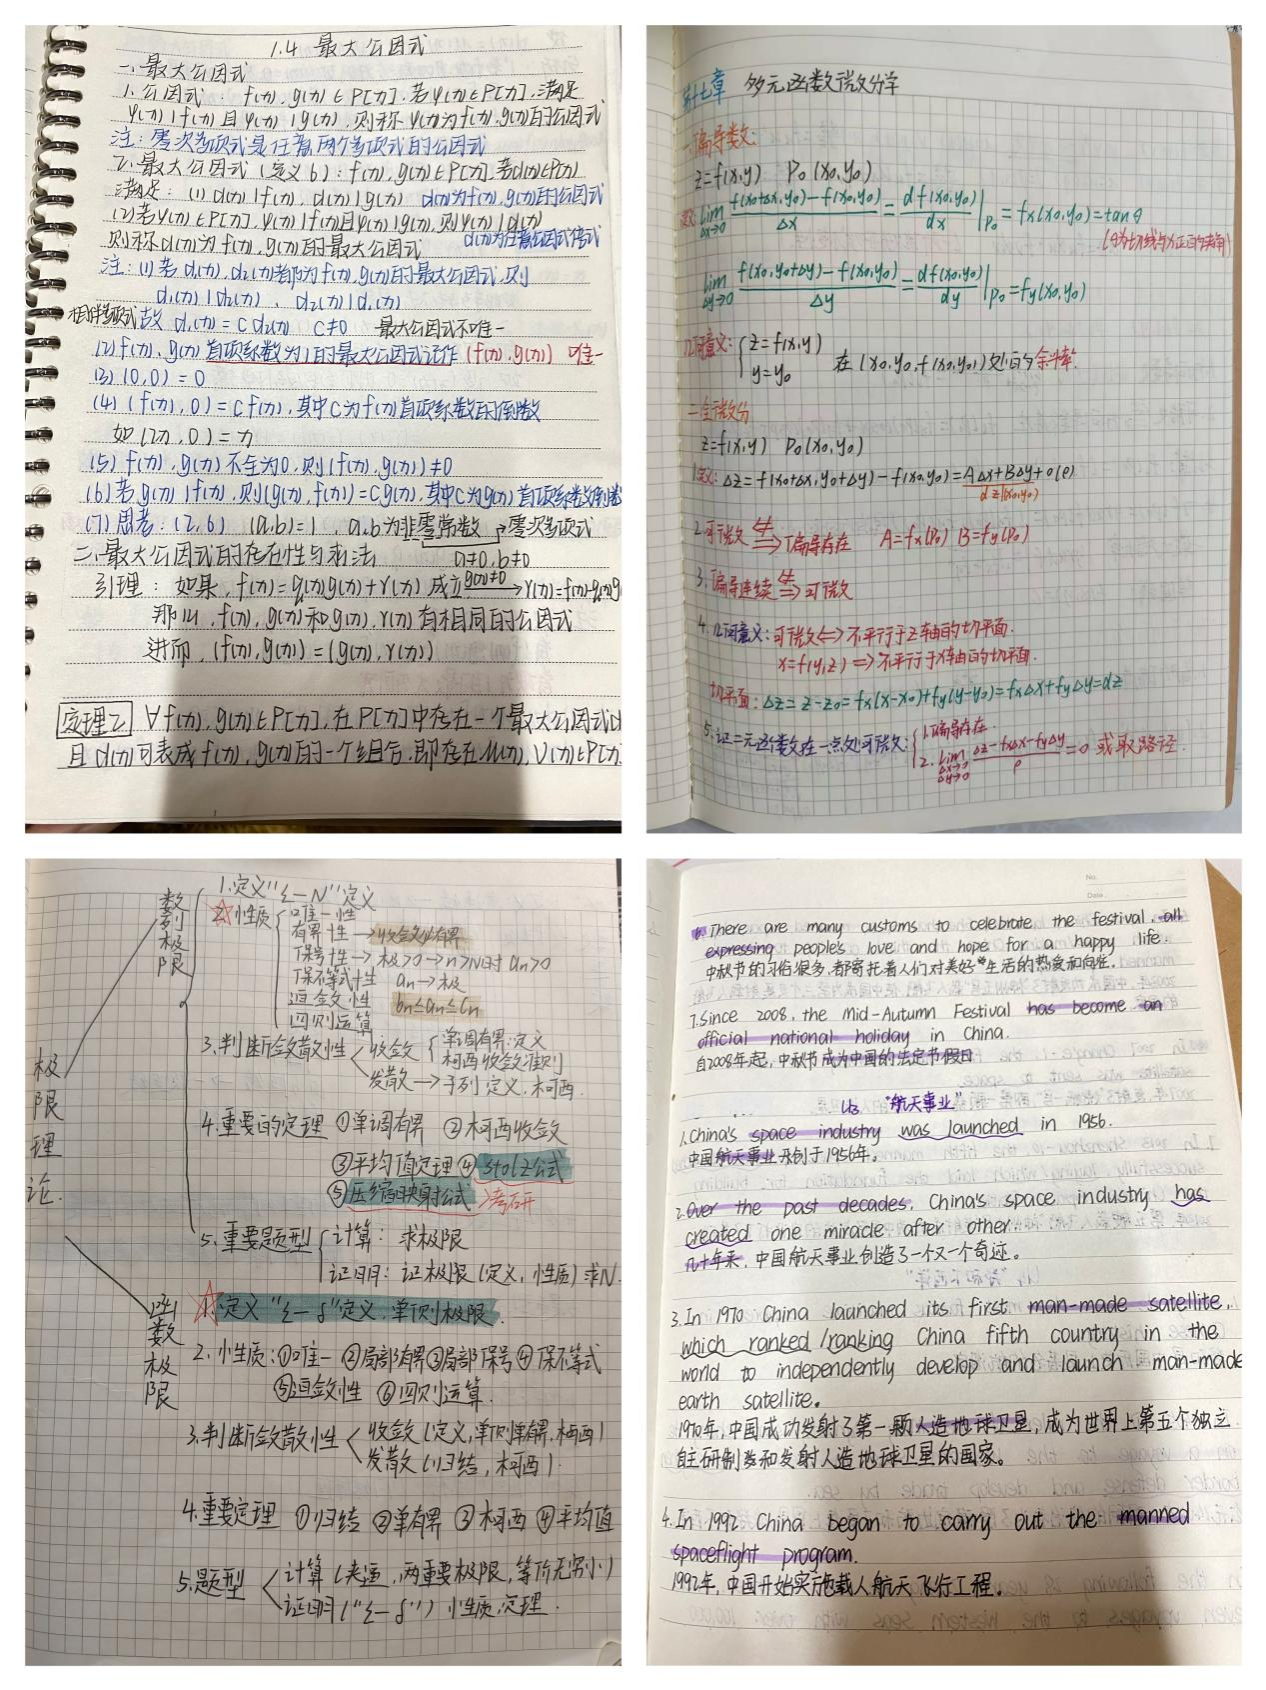 1.4 最大公因式
一、最大公因式
1. 公因式: f(x), g(x)∈P[x], 若ψ(x)∈P[x], 满足
ψ(x)|f(x)且ψ(x)|g(x), 则称ψ(x)为f(x), g(x)的公因式
注: 零次多项式是任意两个多项式的公因式
2. 最大公因式(定义6): f(x), g(x)∈P[x], 若d(x)∈P[x]
满足: (1) d(x)|f(x), d(x)|g(x) d(x)为f(x), g(x)的公因式
(2)若ψ(x)∈P[x], ψ(x)|f(x)且ψ(x)|g(x), 则ψ(x)|d(x)
则称d(x)为f(x), g(x)的最大公因式 d(x)为任意公因式倍式
注: (1)若d₁(x), d₂(x)都为f(x), g(x)的最大公因式, 则
d₁(x)|d₂(x), d₂(x)|d₁(x)
相伴多项式 故 d₁(x)=cd₂(x) c≠0 最大公因式不唯一
(2) f(x), g(x)首项系数为1的最大公因式记作 (f(x), g(x)) 唯一
(3) (0,0)=0
(4) (f(x), 0)=cf(x), 其中c为f(x)首项系数的倒数
如 (2x, 0)=x
(5) f(x), g(x)不全为0, 则(f(x), g(x))≠0
(6) 若g(x)|f(x), 则(g(x), f(x))=cg(x), 其中c为g(x)首项系数倒数
(7) 思考: (2,6) (a,b)=1, a,b为非零常数 → 零次多项式
a≠0, b≠0
二、最大公因式的存在性与求法
引理: 如果, f(x)=q(x)g(x)+r(x) 成立 g(x)≠0 → r(x)=f(x)-q(x)g
那么, f(x), g(x)和g(x), r(x)有相同的公因式
进而, (f(x), g(x))=(g(x), r(x))
定理2 ∀f(x), g(x)∈P[x], 在P[x]中存在一个最大公因式d
且d(x)可表成f(x), g(x)的一个组合, 即存在u(x), v(x)∈P[x]
第十七章 多元函数微分学
一、偏导数:
z=f(x,y) P₀(x₀,y₀)
定义: lim Δx→0 (f(x₀+Δx,y₀)-f(x₀,y₀))/Δx = df(x,y₀)/dx |P₀ = fx(x₀,y₀)=tanθ
(θ为切线与x正向的夹角)
lim Δy→0 (f(x₀,y₀+Δy)-f(x₀,y₀))/Δy = df(x₀,y)/dy |P₀ = fy(x₀,y₀)
几何意义: { z=f(x,y)
y=y₀ 在(x₀,y₀,f(x₀,y₀))处的斜率.
二、全微分
z=f(x,y) P₀(x₀,y₀)
1.定义: Δz=f(x₀+Δx,y₀+Δy)-f(x₀,y₀)=AΔx+BΔy+o(ρ)
dz|(x₀,y₀)
2. 可微 ⇍⇒ 偏导存在 A=fx(P₀) B=fy(P₀)
3. 偏导连续 ⇍⇒ 可微
4. 几何意义: 可微⇔不平行于z轴的切平面.
x=f(y,z) ⇒ 不平行于x轴的切平面.
切平面: Δz=z-z₀=fx(x-x₀)+fy(y-y₀)=fxΔx+fyΔy=dz
5. 证二元函数在一点处可微: { 1.偏导存在.
2. lim Δx→0 Δy→0 (Δz-fxΔx-fyΔy)/ρ=0 或取路径.
极限理论.
数列极限
1.定义"ε-N"定义
☆2.性质 唯一性
有界性→收敛必有界
保号性→极>0→n>N时 an>0
保不等式性 an→极
迫敛性 bn≤an≤cn
四则运算
3.判断敛散性 收敛 单调有界: 定义
柯西收敛准则
发散→子列, 定义, 柯西.
4.重要的定理 ①单调有界 ②柯西收敛
③平均值定理 ④Stolz公式
⑤压缩映射公式 >考研
5.重要题型 计算: 求极限
证明: 证极限(定义, 性质) 求N.
函数极限
☆1.定义"ε-δ"定义, 单侧极限.
2. 性质: ①唯一 ②局部有界 ③局部保号 ④保不等式
⑤迫敛性 ⑥四则运算.
3.判断敛散性 收敛(定义, 单侧, 单有界, 柯西)
发散(归结, 柯西).
4.重要定理 ①归结 ②单有界 ③柯西 ④平均值
5.题型 计算(夹逼, 两重要极限, 等价无穷小)
证明("ε-δ") 性质, 定理.
No.
Date
6. There are many customs to celebrate the festival, all
expressing people's love and hope for a happy life.
中秋节的习俗很多, 都寄托着人们对美好生活的热爱和向往.
7. Since 2008, the Mid-Autumn Festival has become an
official national holiday in China.
自2008年起, 中秋节成为中国的法定节假日
U3 "航天事业"
1. China's space industry was launched in 1956.
中国航天事业开创于1956年。
2. Over the past decades, China's space industry has
created one miracle after other.
几十年来, 中国航天事业创造了一个又一个奇迹。
3. In 1970 China launched its first man-made satellite,
which ranked/ranking China fifth country in the
world to independently develop and launch man-made
earth satellite.
1970年, 中国成功发射了第一颗人造地球卫星, 成为世界上第五个独立
自主研制和发射人造地球卫星的国家。
4. In 1992 China began to carry out the manned
spaceflight program.
1992年, 中国开始实施载人航天飞行工程。